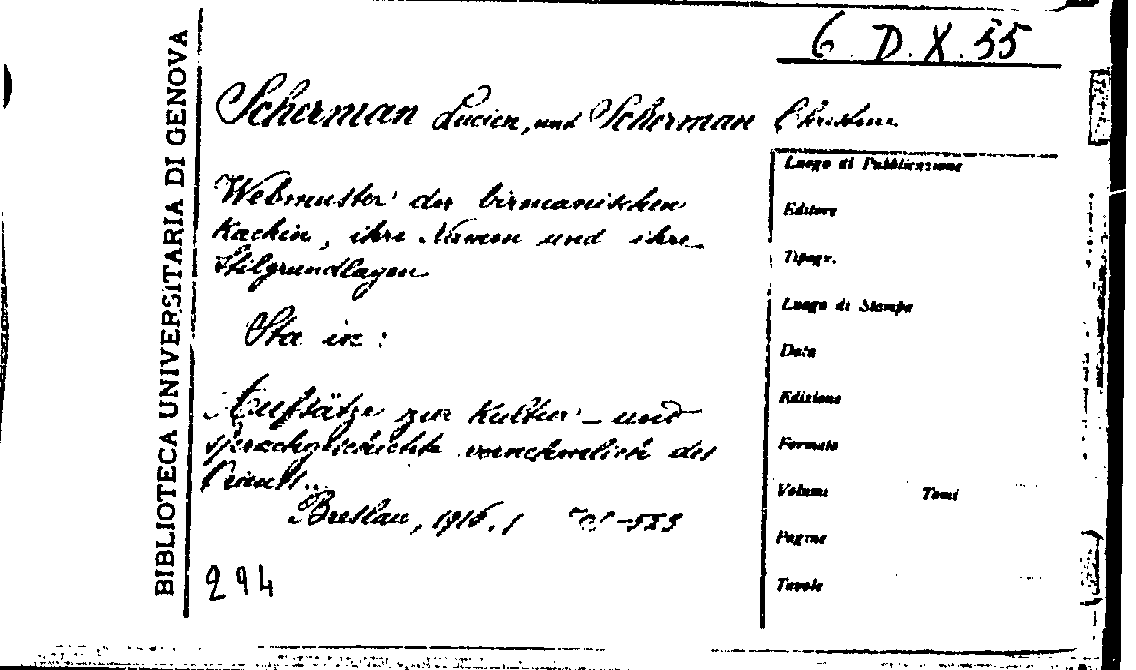 6 D.X.55
BIBLIOTECA UNIVERSITARIA DI GENOVA
Scherman Lucien, und Scherman Christine
Webmuster der birmanischen
Kachin, ihre Namen und ihre
Stilgrundlagen
Sta in:
Aufsätze zur Kultur- und
Sprachgeschichte vornehmlich des
Orients...
Breslau, 1916.
294
Luogo di Pubblicazione
Editore
Tipogr.
Luogo di Stampa
Data
Edizione
Formato
Volumi Tomi
Pagine
Tavole